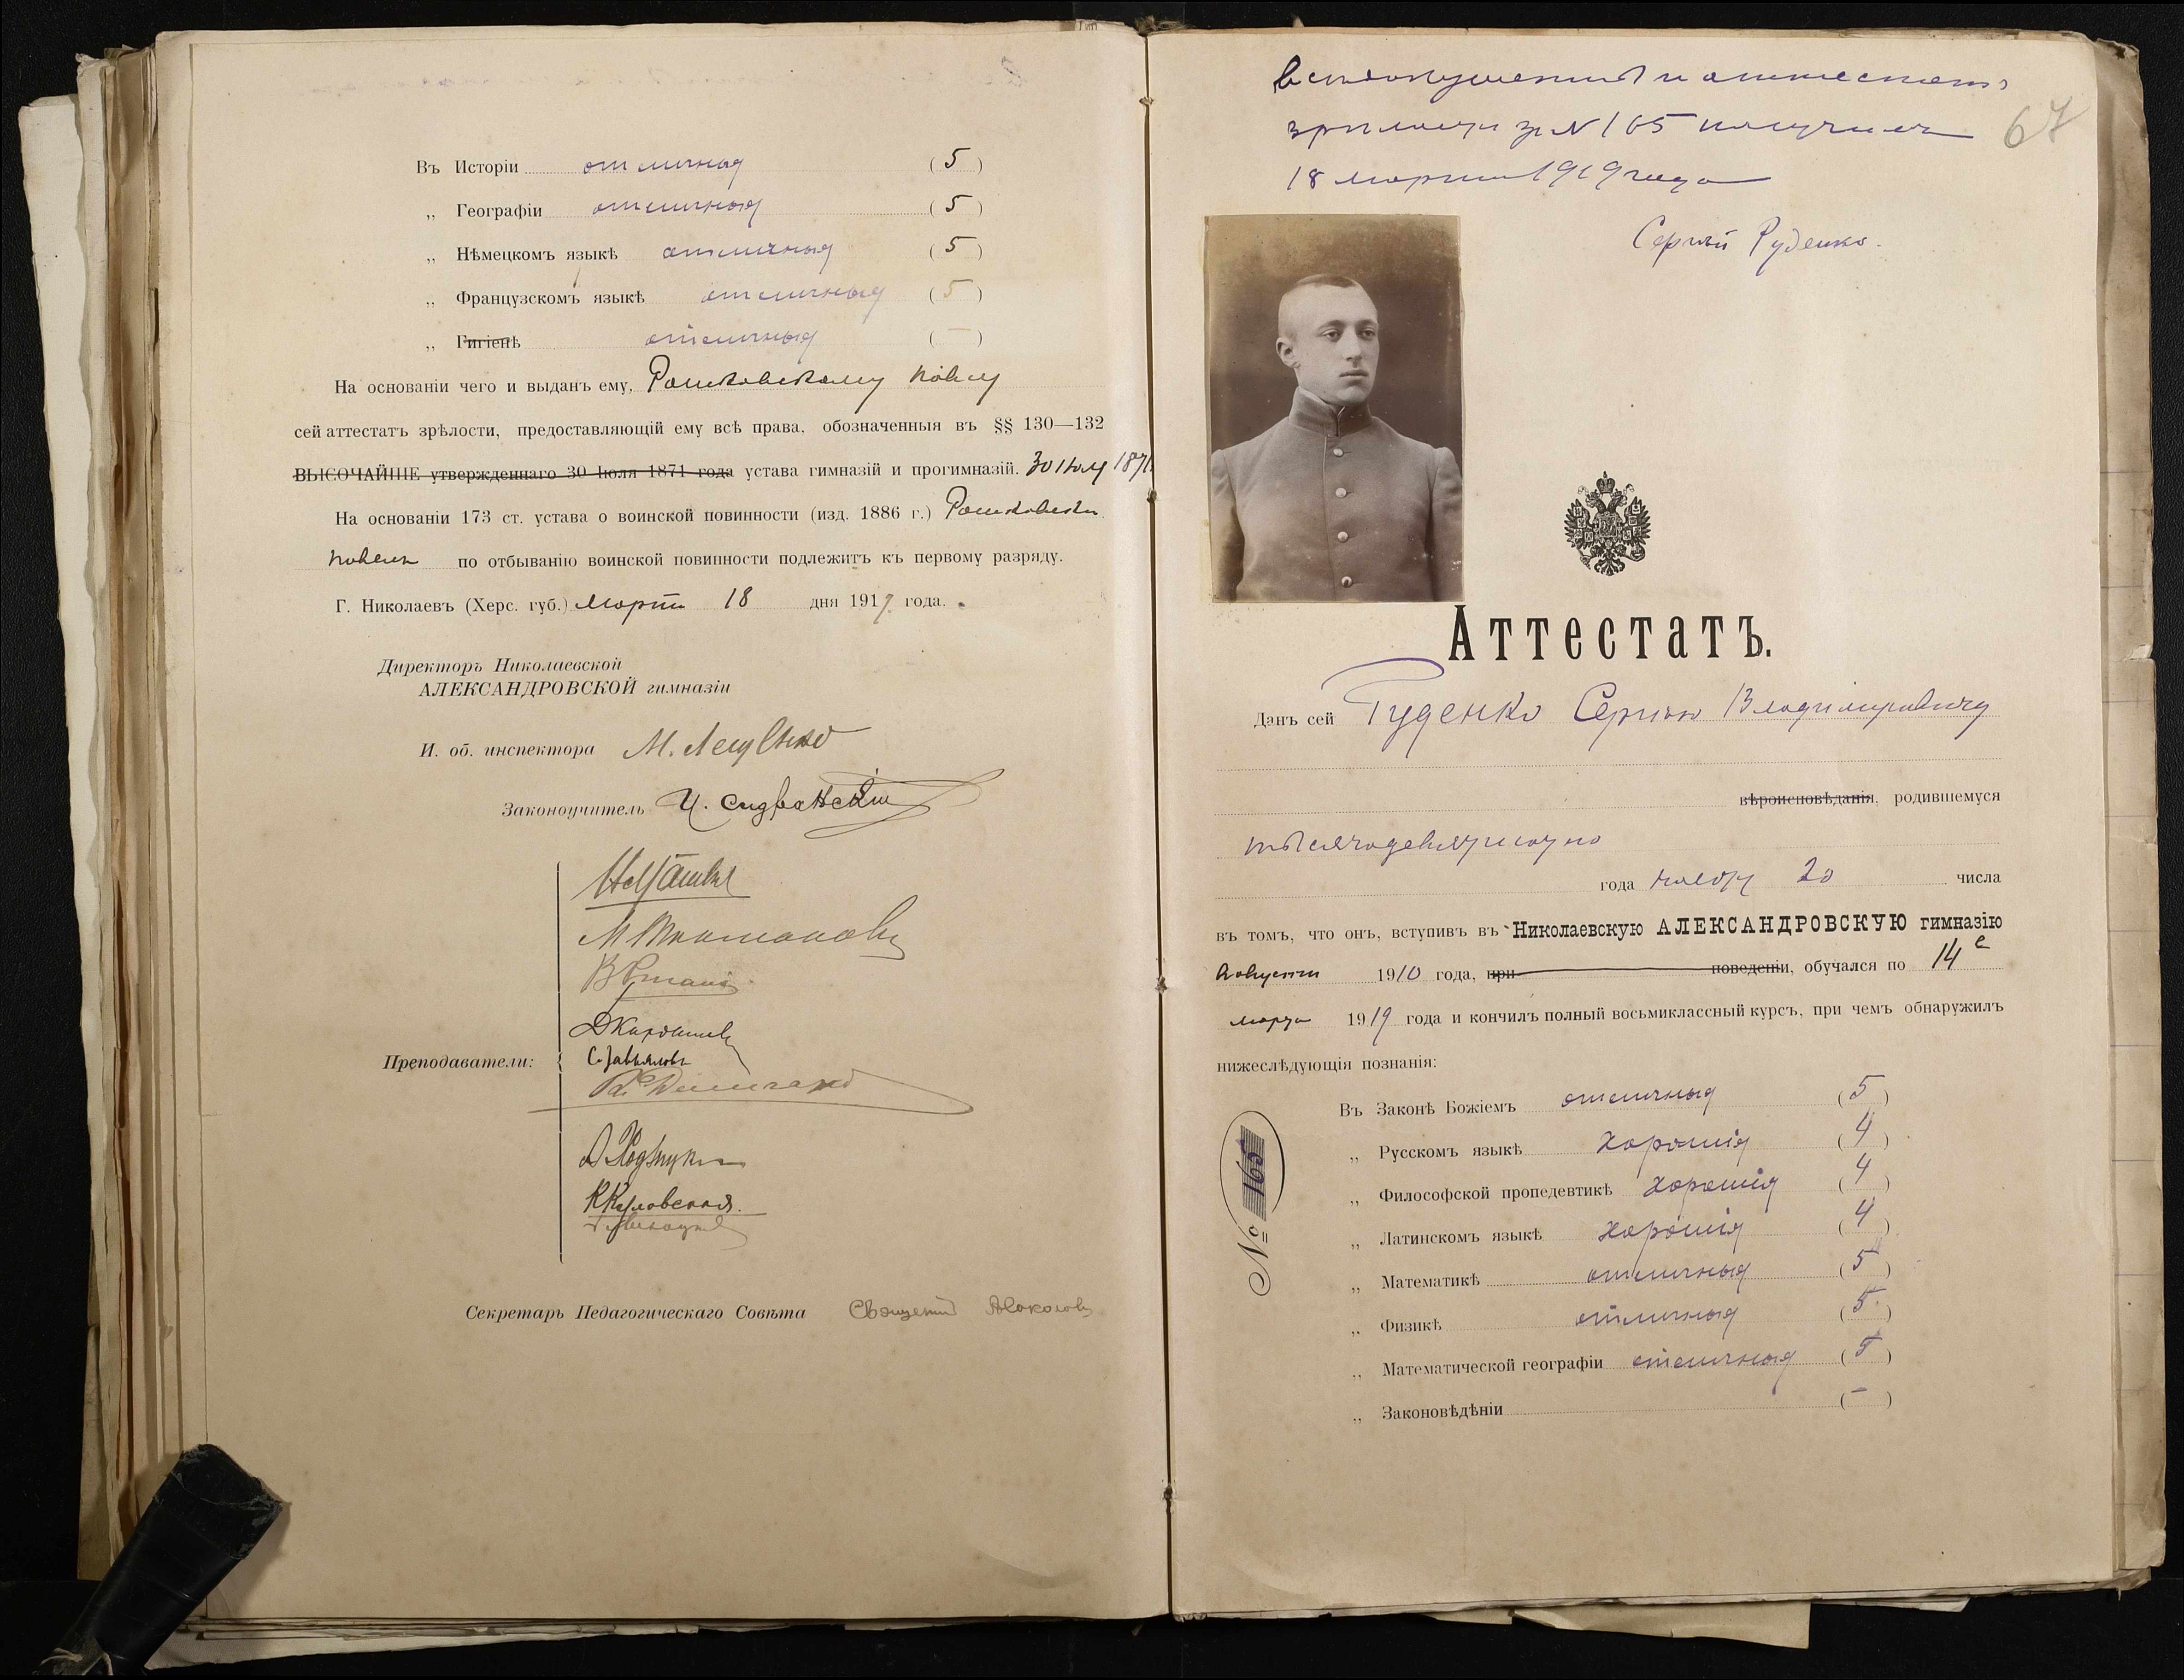 Въ Исторіи отличныя (5)
„ Географіи отличныя (5)
„ Нѣмецкомъ языкѣ отличныя (5)
„ Французскомъ языкѣ отличныя (5)
„ Гигіенѣ отличныя (—)
На основаніи чего и выданъ ему, Рашковскому Павлу
сей аттестатъ зрѣлости, предоставляющій ему всѣ права, обозначенныя въ §§ 130—132
ВЫСОЧАЙШЕ утвержденнаго 30 іюля 1871 года устава гимназій и прогимназій. 30 Іюля 1871
На основаніи 173 ст. устава о воинской повинности (изд. 1886 г.)
по отбыванію воинской повинности подлежитъ къ первому разряду.
Г. Николаевъ (Херс. губ.) Марта 18 дня 1919 года.
Директоръ Николаевской
АЛЕКСАНДРОВСКОЙ гимназіи
И. об. инспектора
Законоучитель
С. Завьяловъ
Преподаватели:
Секретарь Педагогическаго Совѣта
аттестатъ
зрѣлости за № 165 получилъ
67
18 марта 1919 года
Сергѣй Руденко.
Аттестатъ.
Данъ сей Руденко Сергѣю Владиміровичу
вѣроисповѣданія, родившемуся
тысяча девятисотно
года ноября 20 числа
въ томъ, что онъ, вступивъ въ Николаевскую АЛЕКСАНДРОВСКУЮ гимназію
Августа 1910 года, при поведеніи, обучался по 14е
марта 1919 года и кончилъ полный восьмиклассный курсъ, при чемъ обнаружилъ
нижеслѣдующія познанія:
Въ Законѣ Божіемъ отличныя (5)
„ Русскомъ языкѣ хорошія (4)
„ Философской пропедевтикѣ хорошія (4)
„ Латинскомъ языкѣ хорошія (4)
„ Математикѣ отличныя (5)
„ Физикѣ отличныя (5)
„ Математической географіи отличныя (5)
„ Законовѣдѣніи (—)
№ 165